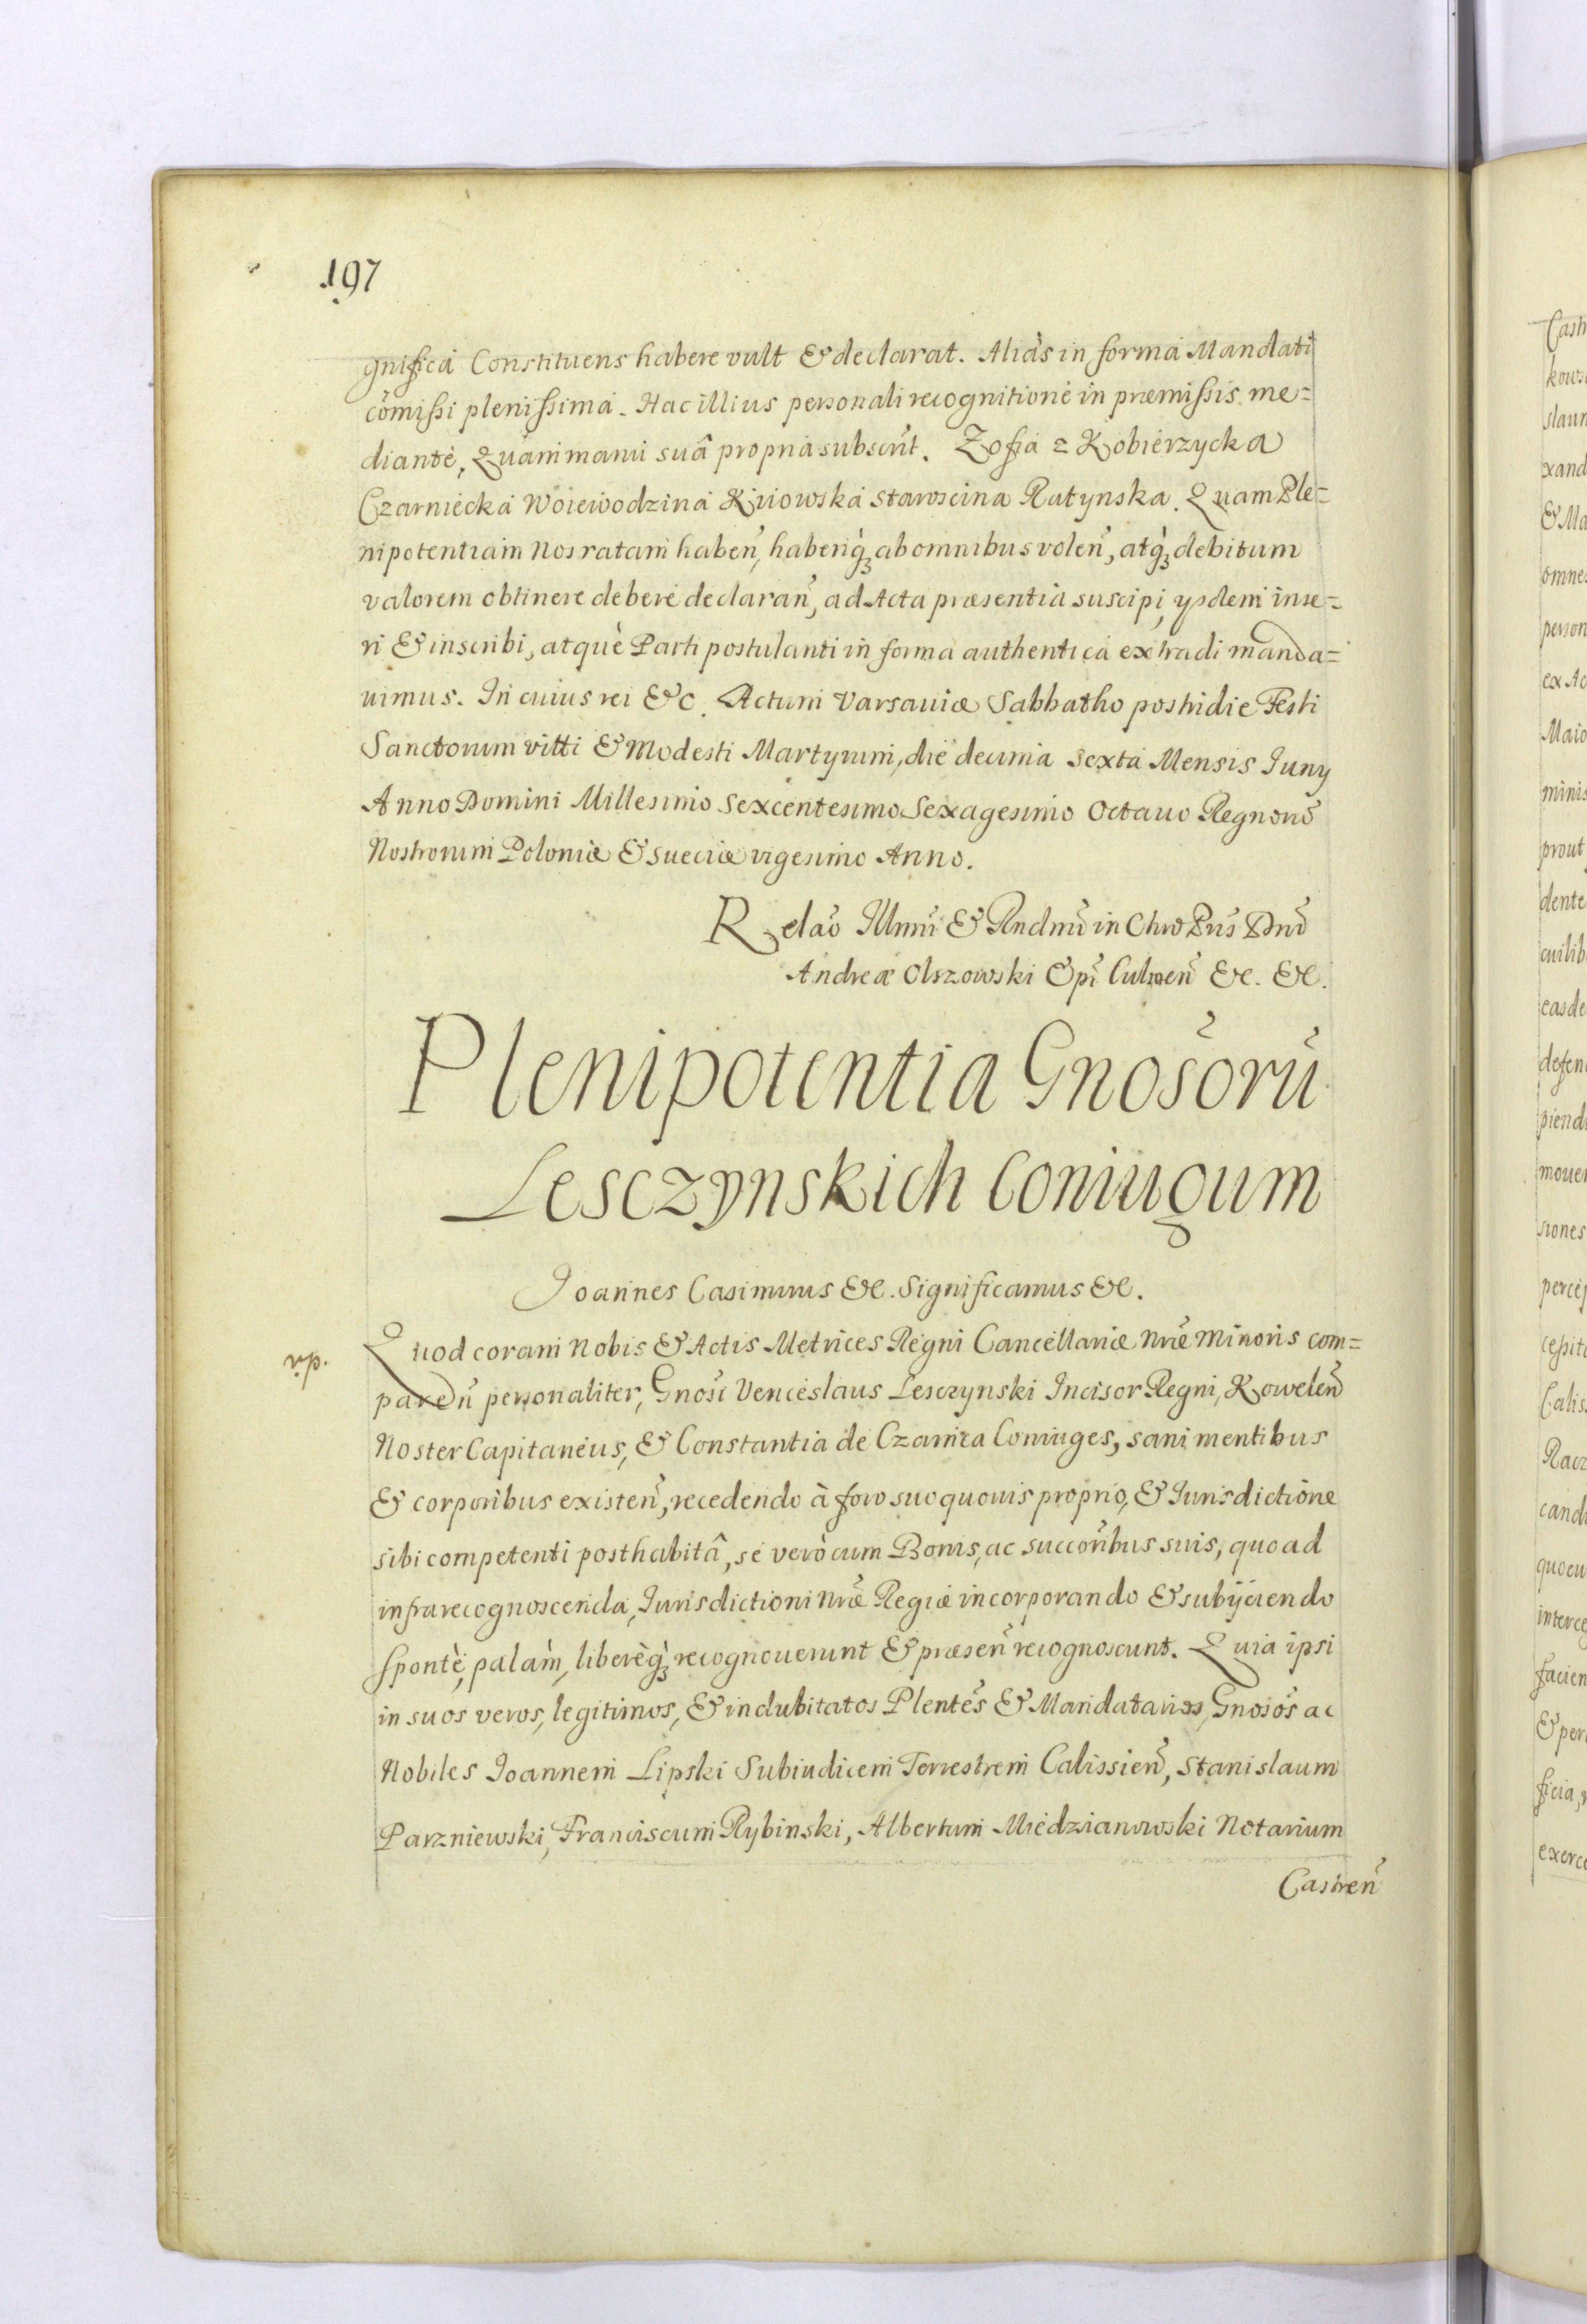 197
gnifica Constituens habere vult & declarat. Aliàs in forma Mandati
cõmissi plenissima. Hac illius personali recognitione in præmissis me=
diante, Quam manu suâ propria subscrit. Zofia z Kobierzycka
Czarniecka Woiewodzina Kiiowska Staroscina Ratynska. Quam Ple=
nipotentiam Nos ratam haben̄, haberiq̀ꝫ ab omnibus volen̄, atq̀ꝫ debitum
valorem obtinere debere declaran̄, ad Acta præsentia suscipi, ysdem inse=
ri & inscribi, atquè Parti postulanti in forma authentica extradi manda=
uimus. In cuius rei &c. Actum Varsauiæ Sabbatho postridie Festi
Sanctorum Vitti & Modesti Martyrum, die decima sexta Mensis Iuny
Anno Domini Millesimo Sexcentesimo Sexagesimo Octauo Regnorū
Nostrorum Poloniæ & Sueciæ vigesimo Anno.
Relaō Illmi & Rndmi in Chro Pris Dni
Andreæ Olszowski Epi Culmen̄ &c. &c.
Plenipotentia Gnosorū
Lesczynskich Coniugum
Ioannes Casimirus &c. Significamus &c.
vp.
Quod coram Nobis & Actis Metrices Regni Cancellariæ Nræ Minoris com=
paren̄ personaliter, Gnosi Venceslaus Lesczynski Incisor Regni, Kowelen̄
Noster Capitaneus, & Constantia de Czarnca Coniuges, sani mentibus
& corporibus existen̄, recedendo à foro suo quouis proprio, & Iurisdictione
sibi competenti posthabitâ, se verò cum Bonis, ac succoribus suis, quo ad
infra recognoscenda, Iurisdictioni Nræ Regiæ incorporando & subijciendo
spontè, palàm, liberèq̀ꝫ recognouerunt & præsen̄ recognoscunt. Quia ipsi
in suos veros, legitimos, & indubitatos Plentes & Mandatarios, Gnosos ac
Nobiles Ioannem Lipski Subiudicem Terrestrem Calissien̄, Stanislaum
Parzniewski, Franciscum Rybinski, Albertum Miedzianowski Notarium
Castren̄